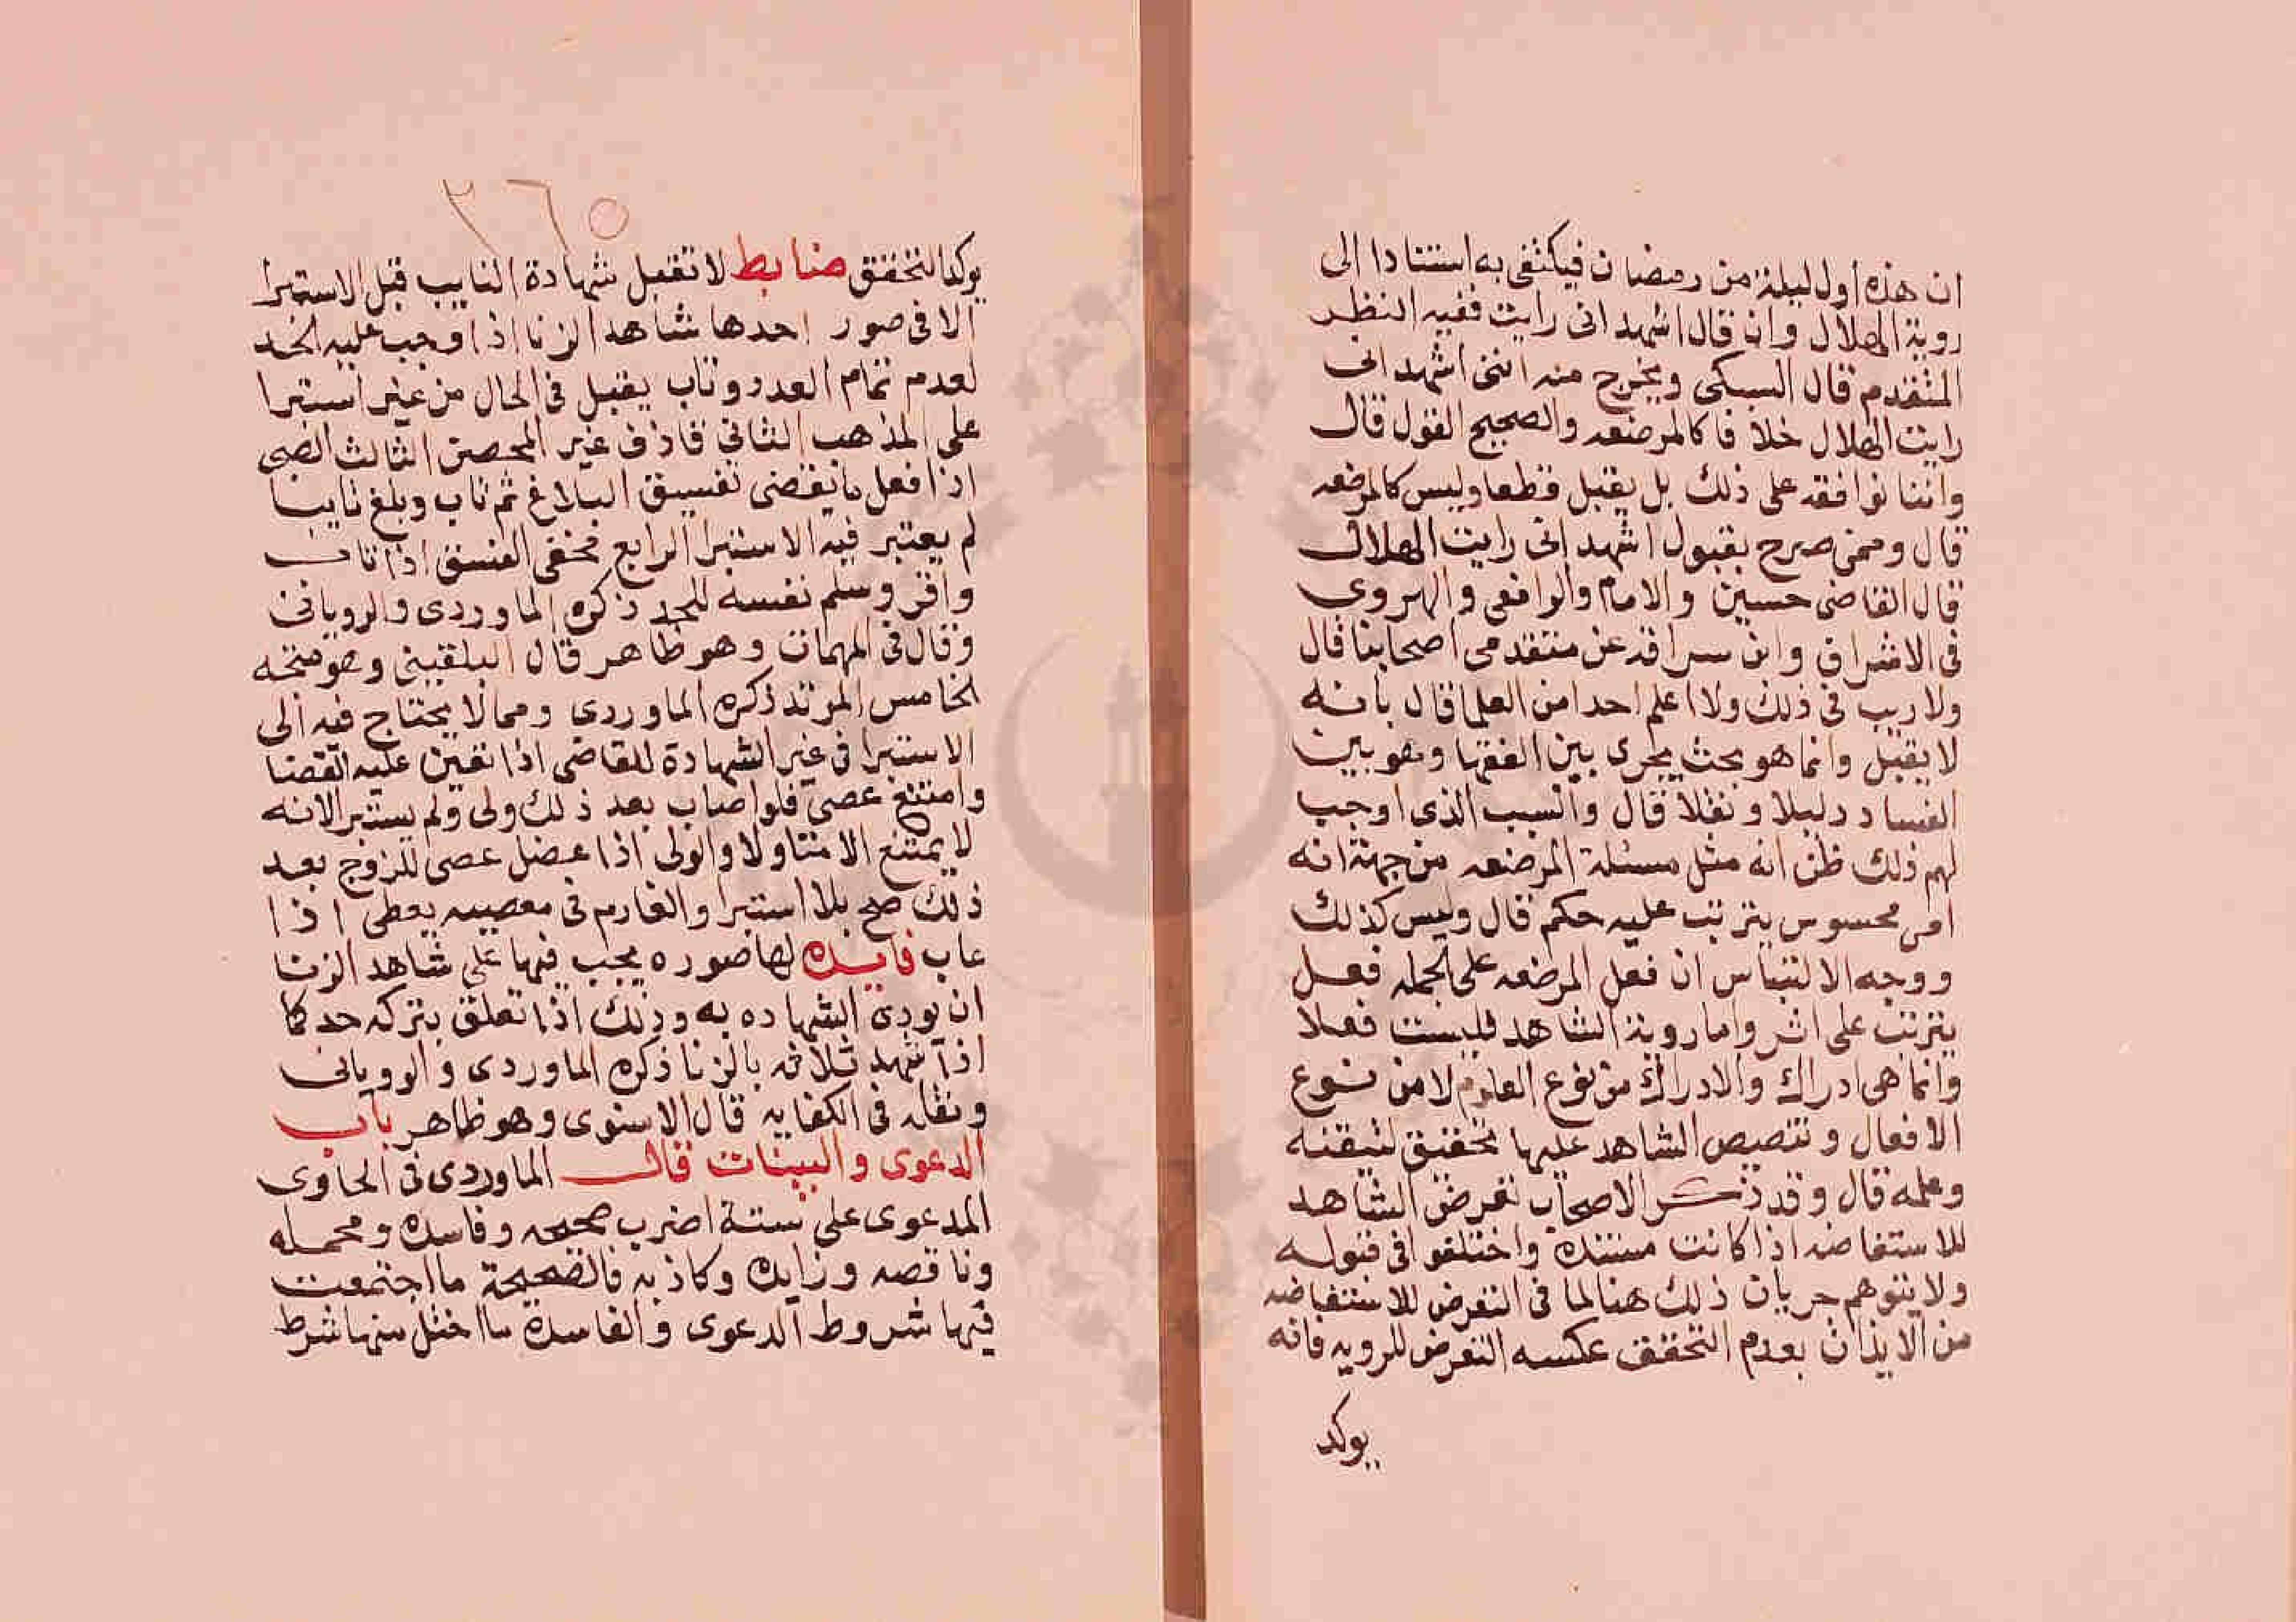 ان هذه أول ليلة من رمضان فيكتفى به استنادا الى
روية الهلال وان قال اشهد انى رايت ففيه النظر
المتقدم قال السبكى ويخرج منه اننى اشهد انى
رايت الهلال خلافا كالمرضعه والصحيح القول قال
واننا نوافقه على ذلك بل يقبل قطعا وليس كالمرضعه
قال وممن صرح بقبول اشهد انى رايت الهلال
قال القاضى حسين والامام والرافعى والهروى
فى الاشراق وابن سراقه عن متقدمى اصحابنا قال
ولا ريب فى ذلك ولا اعلم احدا من العلما قال بانه
لا يقبل وانما هو بحث يجرى بين الفقها وهو بين
الفساد دليلا ونقلا قال والسبب الذى اوجب
لهم ذلك ظن انه مثل مسئلة المرضعه من جهة انه
امر محسوس يترتب عليه حكم قال وليس كذلك
ووجه الالتباس ان فعل المرضعه على الجمله فعل
يترتب على اثر واما روية الشاهد فليست فعلا
وانما هى ادراك والادراك من نوع العلوم لا من نوع
الافعال وتنصيص الشاهد عليها تحقيق لتيقنه
وعلمه قال وقد ذكر الاصحاب تعرض الشاهد
للاستفاضه اذا كانت مستنده واختلفوا فى قبوله
ولا يتوهم جريان ذلك هنا لما فى التعرض للاستفاضه
من الايذان بعدم التحقق عكسه التعرض للرويه فانه
يوكد
٢٦٥
يوكد التحقق ضابط لا تقبل شهادة التايب قبل الاستبرا
الا فى صور احدها شاهد الزنا اذا وجب عليه الحد
لعدم تمام العدد وتاب يقبل فى الحال من غير استبرا
على المذهب الثانى قاذف غير المحصن الثالث الصبى
اذا فعل ما يقضى تفسيق البلاغ ثم تاب وبلغ تايبا
لم يعتبر فيه الاستبرا الرابع مخفى الفسق اذا تاب
واقر وسلم نفسه للحد ذكره الماوردى والرويانى
وقال فى المهمات وهو ظاهر قال البلقينى وهو متجه
الخامس المرتد ذكره الماوردى ومما لا يحتاج فيه الى
الاستبرا فى غير الشهادة للقاضى اذا تعين عليه القضا
وامتنع عصى فلو اصاب بعد ذلك ولى ولم يستبر لانه
لا يمتنع الا متاولا والولى اذا عضل عصى للزوج بعد
ذلك صح بلا استبرا والغارم فى معصيه يعطى اذا
عاب فايده لها صوره يجب فيها على شاهد الزنا
ان يودى الشهاده به وذلك اذا تعلق بتركه حد كما
اذا شهد ثلاثه بالزنا ذكره الماوردى والرويانى
ونقله فى الكفايه قال الاسنوى وهو ظاهر باب
الدعوى والبينات قال الماوردى فى الحاوى
المدعوى على ستة اضرب صحيحه وفاسده ومجمله
وناقصه وزايده وكاذبه فالصحيحة ما اجتمعت
فيها شروط الدعوى والفاسدة ما اختل منها شرط